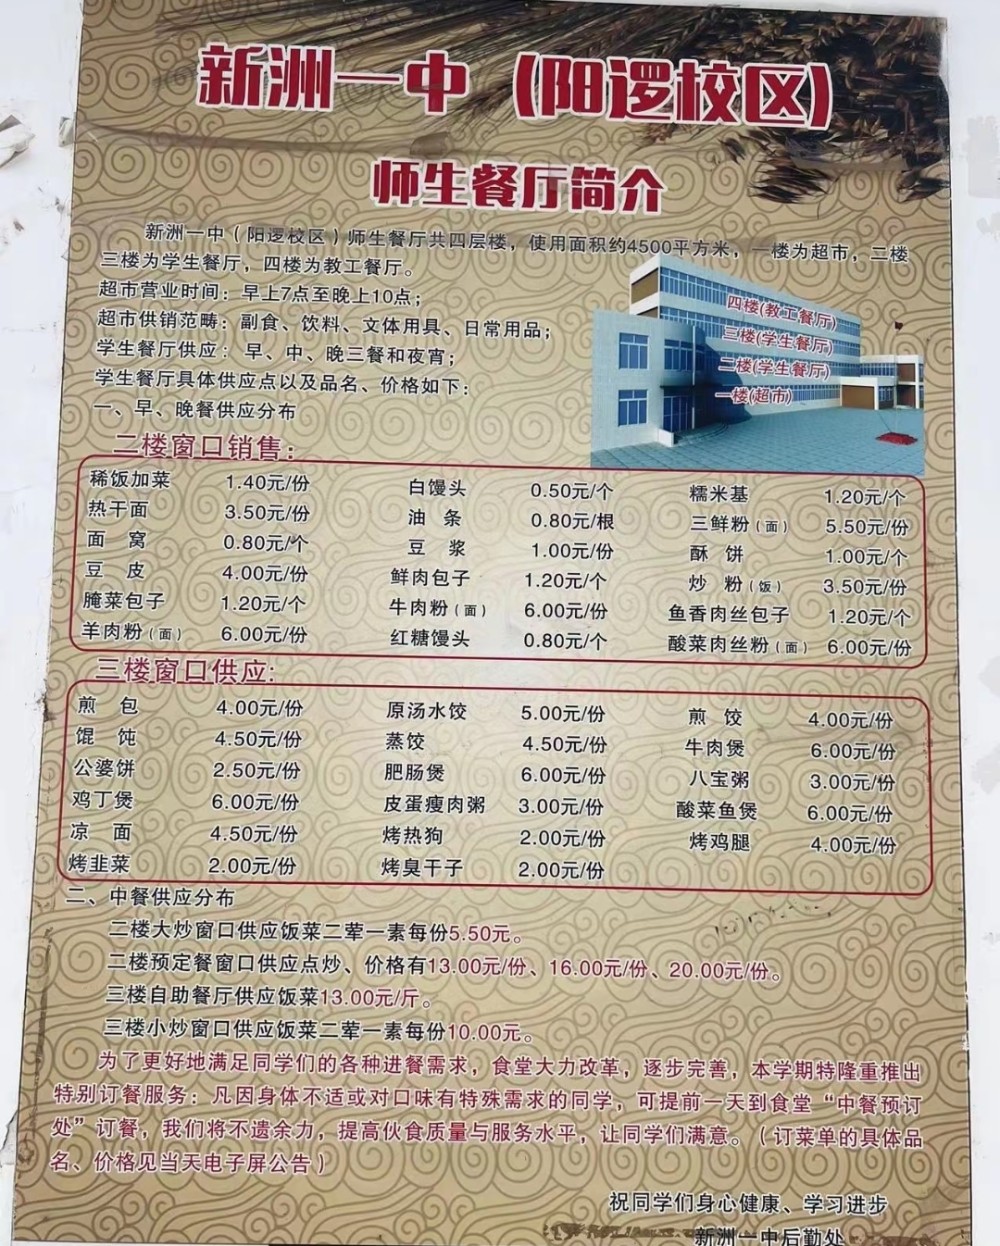 新洲一中（阳逻校区）
师生餐厅简介
新洲一中（阳逻校区）师生餐厅共四层楼，使用面积约4500平方米，一楼为超市，二楼
三楼为学生餐厅，四楼为教工餐厅。
超市营业时间：早上7点至晚上10点；
超市供销范畴：副食、饮料、文体用具、日常用品；
学生餐厅供应：早、中、晚三餐和夜宵；
学生餐厅具体供应点以及品名、价格如下：
四楼(教工餐厅)
三楼(学生餐厅)
二楼(学生餐厅)
一楼(超市)
一、早、晚餐供应分布
二楼窗口销售：
稀饭加菜 1.40元/份 白馒头 0.50元/个 糯米基 1.20元/个
热干面 3.50元/份 油条 0.80元/根 三鲜粉（面） 5.50元/份
面窝 0.80元/个 豆浆 1.00元/份 酥饼 1.00元/个
豆皮 4.00元/份 鲜肉包子 1.20元/个 炒粉（饭） 3.50元/份
腌菜包子 1.20元/个 牛肉粉（面） 6.00元/份 鱼香肉丝包子 1.20元/个
羊肉粉（面） 6.00元/份 红糖馒头 0.80元/个 酸菜肉丝粉（面） 6.00元/份
三楼窗口供应：
煎包 4.00元/份 原汤水饺 5.00元/份 煎饺 4.00元/份
馄饨 4.50元/份 蒸饺 4.50元/份 牛肉煲 6.00元/份
公婆饼 2.50元/份 肥肠煲 6.00元/份 八宝粥 3.00元/份
鸡丁煲 6.00元/份 皮蛋瘦肉粥 3.00元/份 酸菜鱼煲 6.00元/份
凉面 4.50元/份 烤热狗 2.00元/份 烤鸡腿 4.00元/份
烤韭菜 2.00元/份 烤臭干子 2.00元/份
二、中餐供应分布
二楼大炒窗口供应饭菜二荤一素每份5.50元。
二楼预定餐窗口供应点炒、价格有13.00元/份、16.00元/份、20.00元/份。
三楼自助餐厅供应饭菜13.00元/斤。
三楼小炒窗口供应饭菜二荤一素每份10.00元。
为了更好地满足同学们的各种进餐需求，食堂大力改革，逐步完善，本学期特隆重推出
特别订餐服务：凡因身体不适或对口味有特殊需求的同学，可提前一天到食堂“中餐预订
处”订餐，我们将不遗余力，提高伙食质量与服务水平，让同学们满意。（订菜单的具体品
名、价格见当天电子屏公告）
祝同学们身心健康、学习进步
新洲一中后勤处